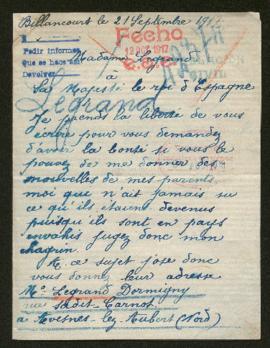 Billancourt le 21 Septembre 1917
Fecho
12 OCT 1917
Pedir informes
Que se hace
Devolver
Madame Legrand
à
Sa Majesté le roi d'Espagne
Legrand
Je prends la liberté de vous
écrire pour vous demandez
d'avoir la bonté si vous le
pouvez de me donner des
nouvelles de mes parents,
moi que n'ait jamais su
ce qu'ils étaient devenus
puisqu'ils sont en pays
envahis jugez donc mon
chagrin.
A ce sujet j'ose donc
vous donnez leur adresse
Mr Legrand Dormigny
rue Sadit Carnot
à Avesnes lez Aubert (Nord)